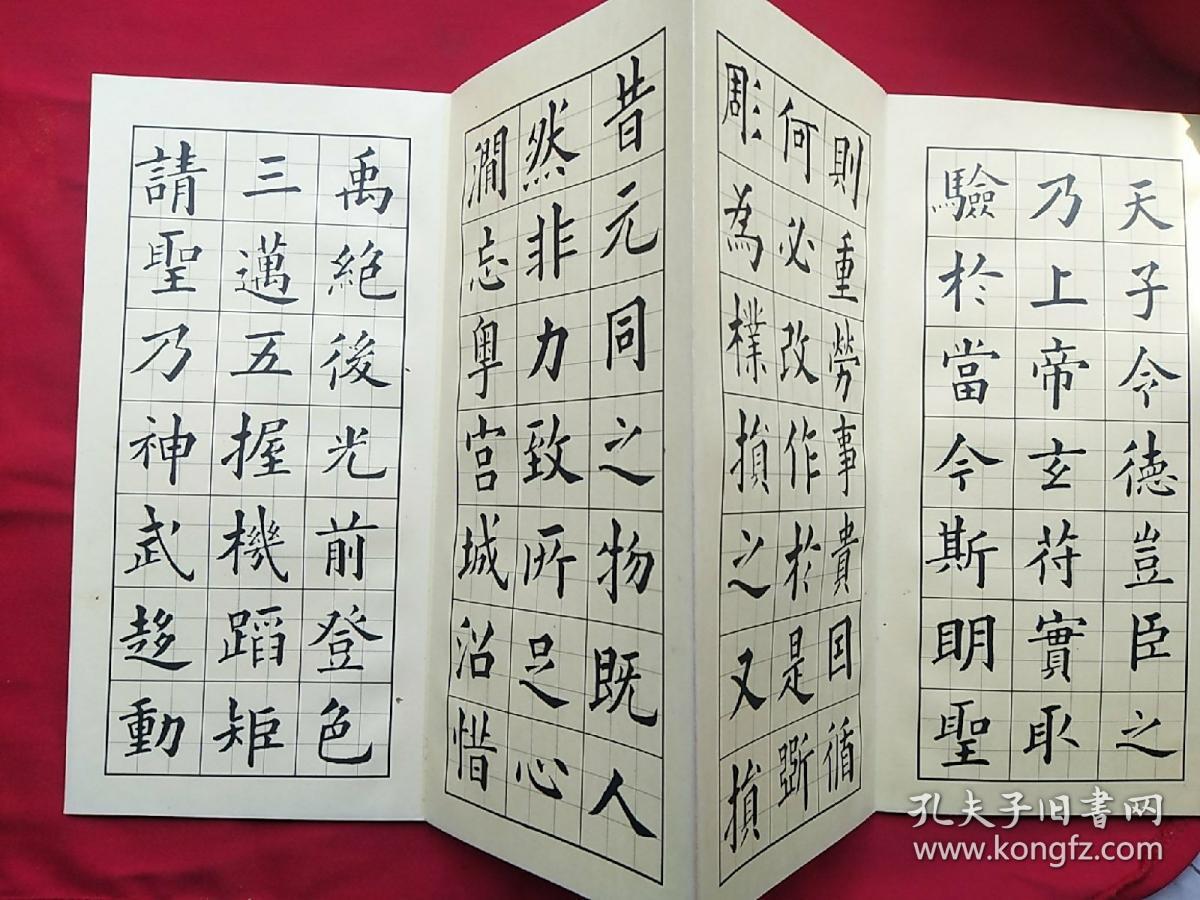 天子令德豈臣之
乃上帝玄苻實取
驗於當今斯明聖
則重勞事貴因循
何必改作於是斲
彫為樸損之又損
昔元同之物既人
然非力致所足心
澗忘粤宮城沿惜
禹絕後光前登色
三邁五握機蹈矩
請聖乃神武趍動
孔夫子旧书网
www.kongfz.com